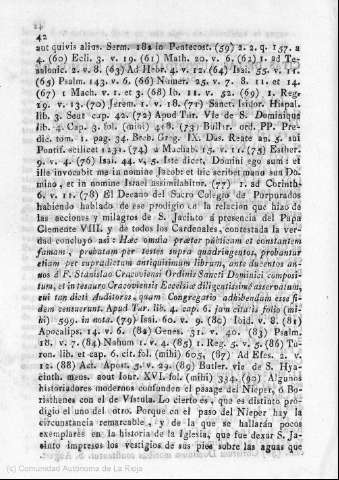 42
aut quivis alius. Serm. 182 in Pentecost. (59) 2. 2. q. 157. a
4. (60) Ecli. 3. v. 19. (61) Math. 20. v. 6. (62) 1. ad Tes-
salonic. 2. v. 8. (63) Ad Hebr. 4. v. 12. (64) Isai. 55. v. 11.
(65) Psalm. 143. v. 6. (66) Numer. 25. v. 7. 8. 11. et 14.
(67) 1 Mach. v. 1. et 3. (68) Ib. 11. v. 52. (69) 1. Reg.
29. v. 13. (70) Jerem. 1. v. 18. (71) Sanct. Isidor. Hispal.
lib. 3. Sent cap. 42. (72) Apud Tur. Vie de S. Dominique
lib. 4. Cap. 3. fol. (mihi) 418. (73) Bullar. ord. PP. Pre-
dic. tom. 1. pag. 34. Breb. Greg. IX. Dis. Reate an. 5. sui
Pontif. scilicet 1231. (74) 2 Machab. 15. v. 11. (75) Esther.
9. v. 4. (76) Isai. 44. v. 5. Iste dicet, Domini ego sum: et
ille invocabit me in nomine Jacob: et hic scribet manu sua Do-
mino, et in nomine Israel assimilabitur. (77) 1. ad Corinth.
6. v. 11. (78) El Decano del Sacro Colegio de Purpurados
habiendo hablado de ese prodigio en la relacion que hizo de
las acciones y milagros de S. Jacinto á presencia del Papa
Clemente VIII. y de todos los Cardenales, contestada la ver-
dad concluyó asi: Hæc omnia præter publicam et constantem
famam, probatam per testes supra quadringentos, probantur
etiam per supradictum antiquissimum librum, ante ducentos an-
nos à F. Stanislao Cracoviensi Ordinis Sancti Dominici composi-
tum, et in tesauro Cracoviensis Ecclesiæ diligentissimé asservatum,
cui tan dicti Auditores, quam Congregatio adhibendam esse fi-
dem censuerunt. Apud Tur. lib. 4. cap. 6. jam citatis folio (mi-
hi) 599. in nota. (79) Isai. 60. v. 9. (80) Ibid. v. 8. (81)
Apocalips. 14. v. 6. (82) Genes. 31. v. 40. (83) Psalm.
18. v. 7. (84) Nahum 1. v. 4. (85) 1. Reg. 5. v. 5. (86) Tu-
ron. lib. et cap. 6. cit. fol. (mihi) 605, (87) Ad Efes. 2. v.
12. (88) Act. Apost. 5. v. 29. (89) Butler. vie de S. Hya-
cinth. mens. aout Iour. XVI. fol. (mihi) 334. (90) Algunos
historiadores modernos confunden el pasage del Nieper, ó Bo-
risthenes con el de Vístula. Lo cierto es, que es distinto pro-
digio el uno del otro. Porque en el paso del Nieper hay la
circunstancia remarcable, y de la que se hallarán pocos
exemplares en la historia de la Iglesia, que fue dexar S. Ja-
cinto impresos los vestigios de sus pies sobre las aguas que
(c) Comunidad Autónoma de La Rioja